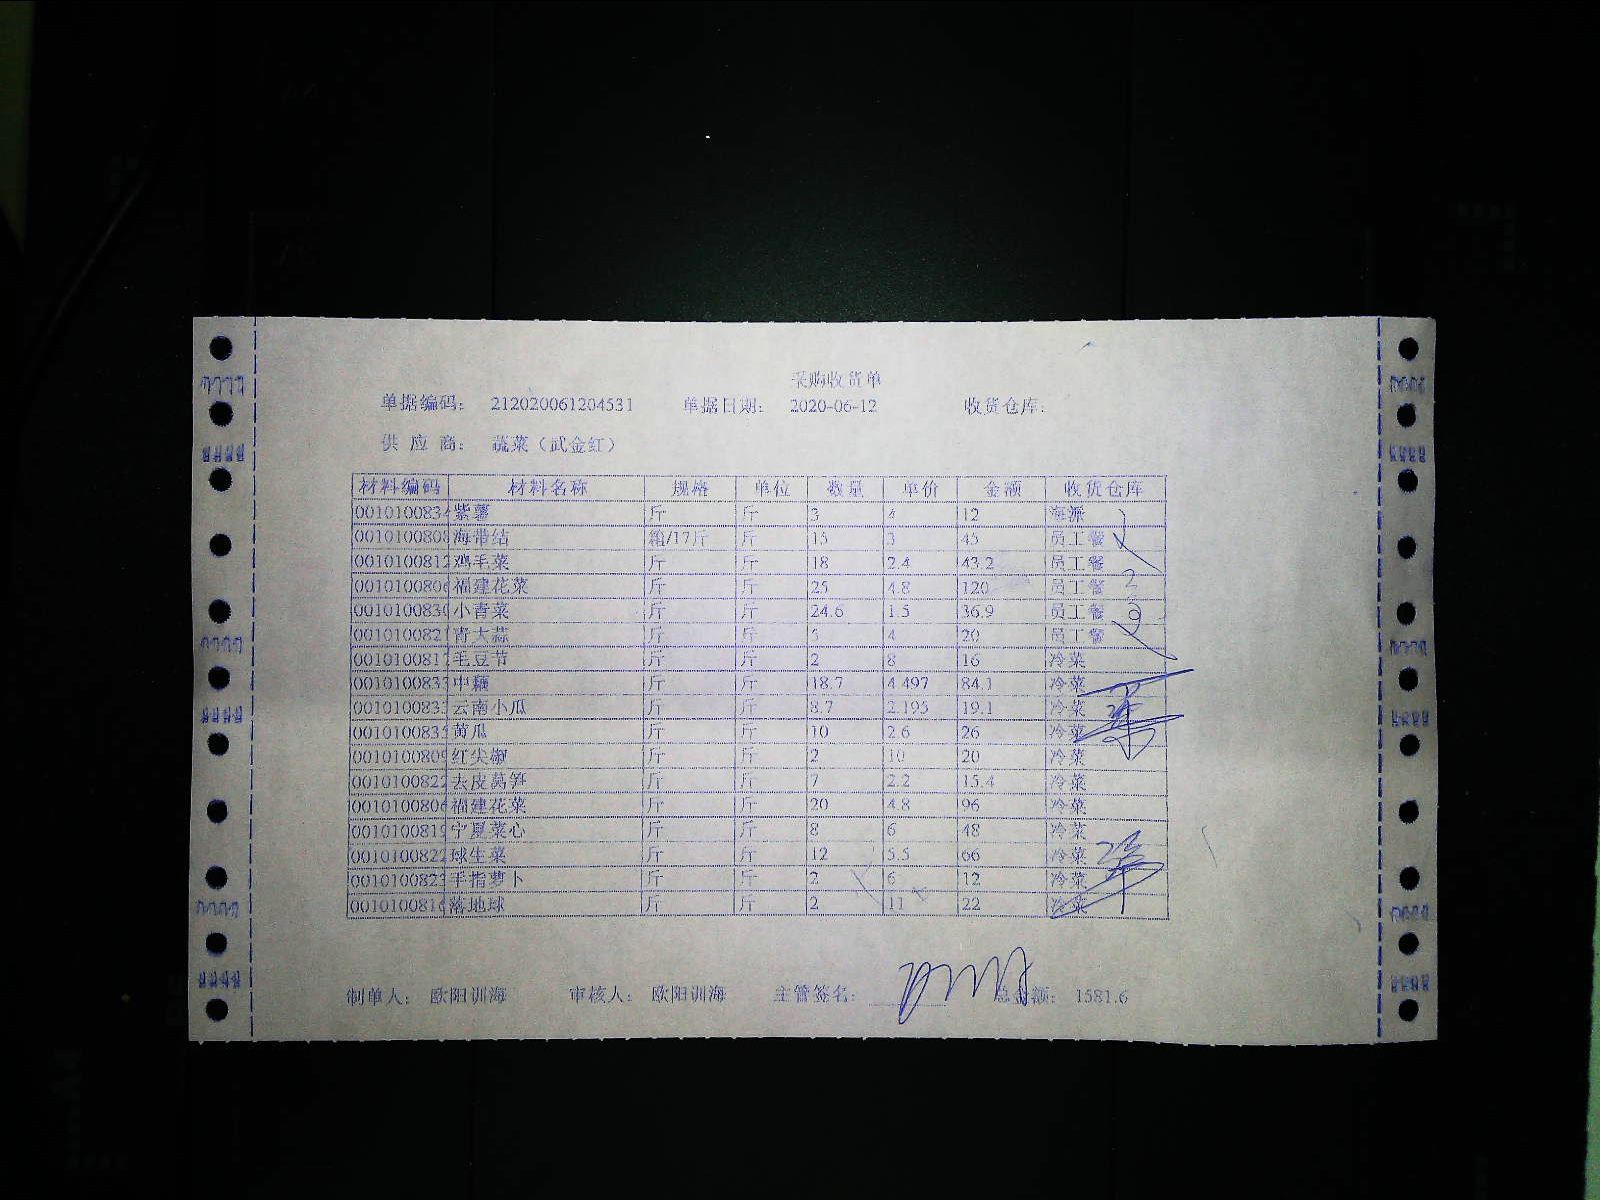 采购收货单
单据编码: 212020061204531 单据日期: 2020-06-12 收货仓库:
供应商: 蔬菜（武金红）
材料编码 材料名称 规格 单位 数量 单价 金额 收货仓库
0010100834 紫薯 斤 斤 3 4 12 海派
0010100808 海带结 箱/17斤 斤 15 3 45 员工餐
0010100812 鸡毛菜 斤 斤 18 2.4 43.2 员工餐
0010100806 福建花菜 斤 斤 25 4.8 120 员工餐
0010100830 小青菜 斤 斤 24.6 1.5 36.9 员工餐
001010082 青大蒜 斤 斤 5 4 20 员工餐
001010081 毛豆节 斤 斤 2 8 16 冷菜
001010083 中藕 斤 斤 18.7 4.497 84.1 冷菜
001010083 云南小瓜 斤 斤 8.7 2.195 19.1 冷菜
001010083 黄瓜 斤 斤 10 2.6 26 冷菜
0010100809 红尖椒 斤 斤 2 10 20 冷菜
0010100822 去皮莴笋 斤 斤 7 2.2 15.4 冷菜
0010100806 福建花菜 斤 斤 20 4.8 96 冷菜
0010100819 宁夏菜心 斤 斤 8 6 48 冷菜
0010100822 球生菜 斤 斤 12 5.5 66 冷菜
001010082 手指萝卜 斤 斤 2 6 12 冷菜
0010100816 落地球 斤 斤 2 11 22 冷菜
制单人: 欧阳训海 审核人: 欧阳训海 主管签名: 总金额: 1581.6